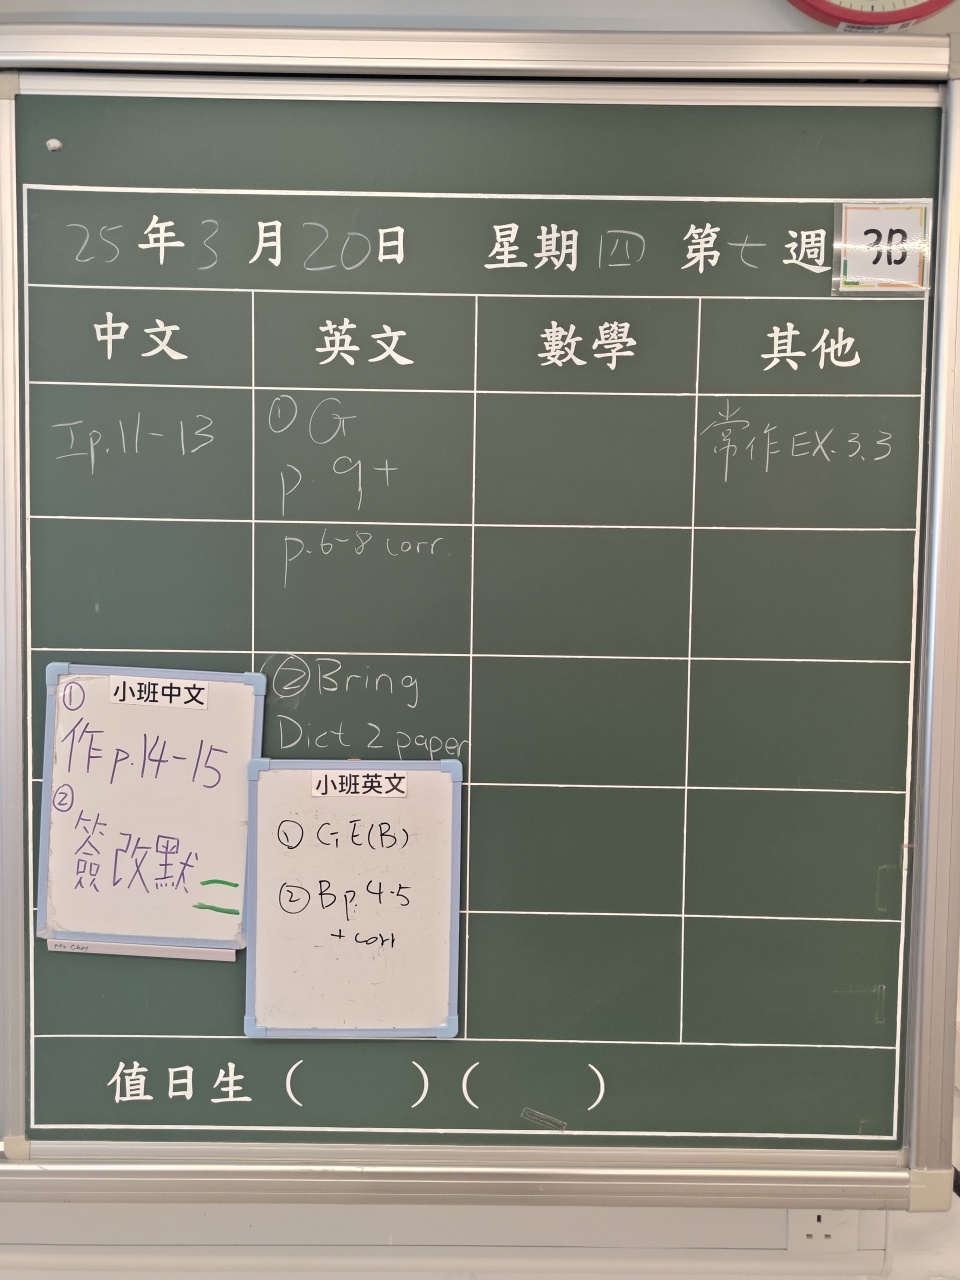 25年3月20日 星期四 第七週 3B
中文 英文 數學 其他
工p.11-13
① G
p.9+
p.6-8 corr.
② Bring
Dict 2 paper
常作EX.3.3
小班中文
①
作p.14-15
②
簽改默二
小班英文
① GE(B)
② Bp.4-5
+ corr
值日生（ ）（ ）